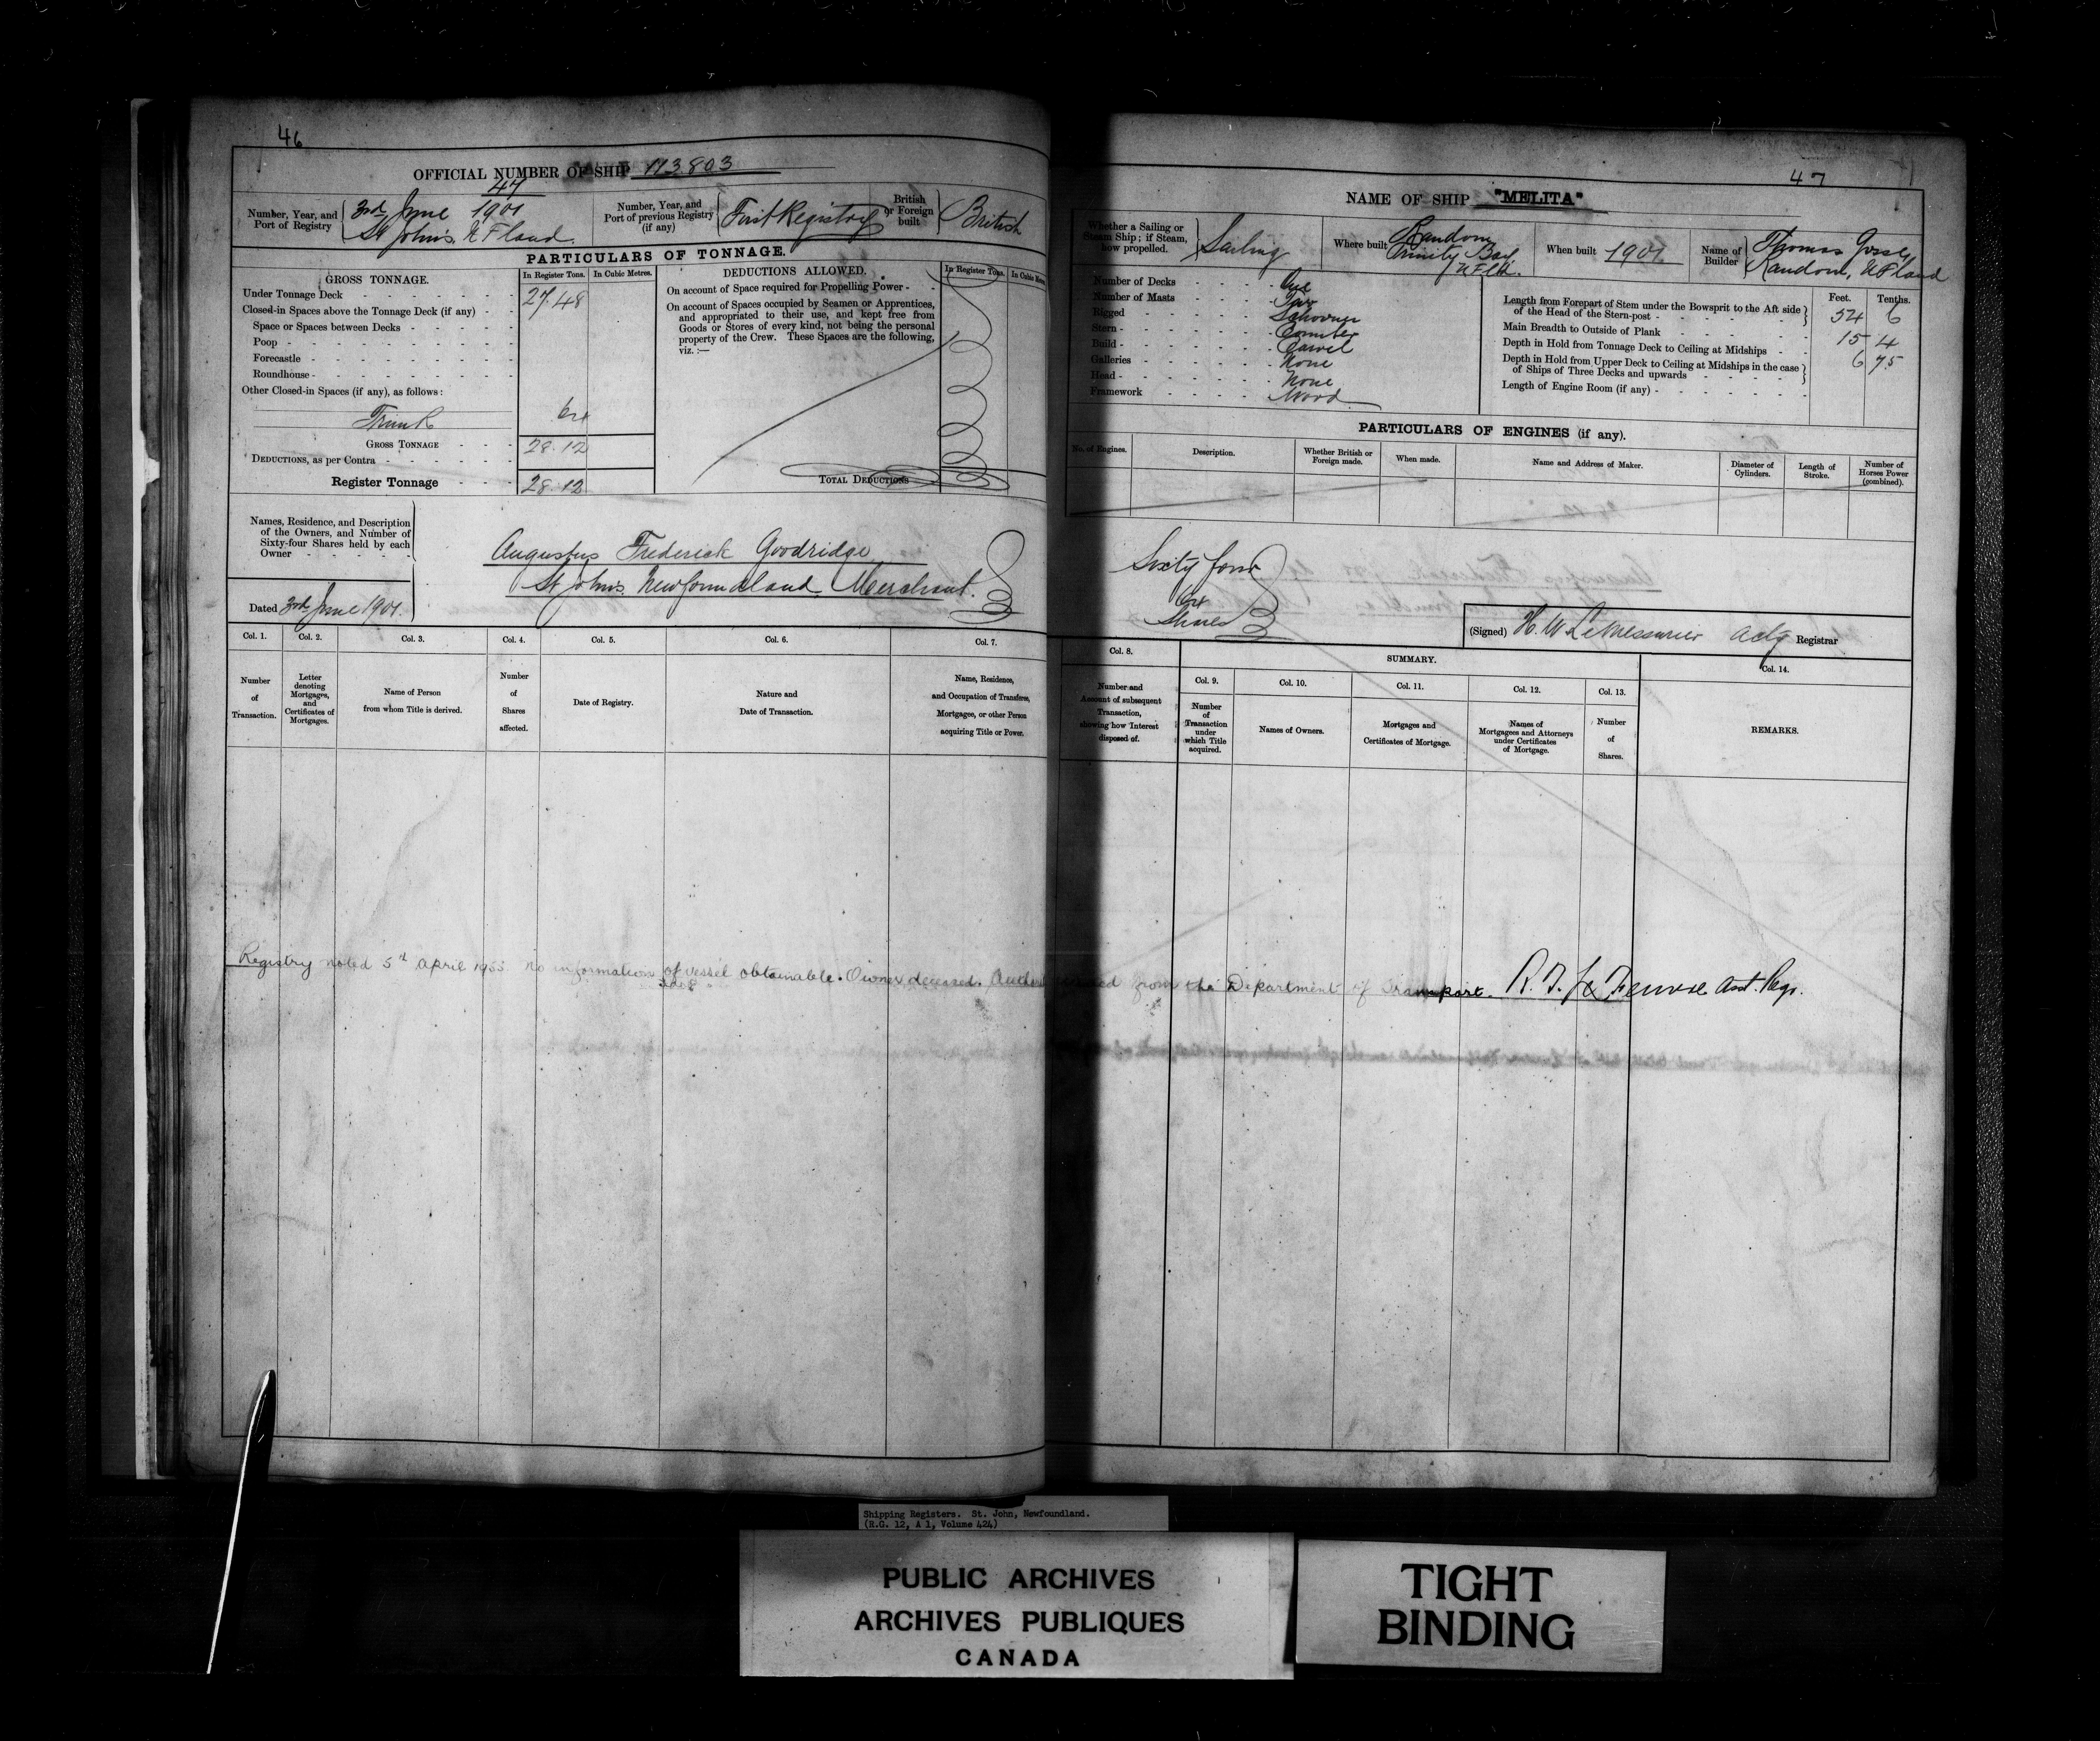 46
OFFICIAL NUMBER OF SHIP 113.803
Number, Year, and Port of Registry
47
3rd June 1901
St John's, N F land.
Number, Year, and Port of previous Registry (if any)
First Registry
British or Foreign built
British
PARTICULARS OF TONNAGE.
GROSS TONNAGE.
In Register Tons.
In Cubic Metres.
Under Tonnage Deck 27.48
Closed-in Spaces above the Tonnage Deck (if any)
Space or Spaces between Decks
Poop
Forecastle
Roundhouse
Other Closed-in Spaces (if any), as follows:
Trunk 64
GROSS TONNAGE 28.12
DEDUCTIONS, as per Contra
Register Tonnage 28.12
DEDUCTIONS ALLOWED.
In Register Tons.
In Cubic Metres
On account of Space required for Propelling Power
On account of Spaces occupied by Seamen or Apprentices,
and appropriated to their use, and kept free from
Goods or Stores of every kind, not being the personal
property of the Crew. These Spaces are the following,
viz.:—
TOTAL DEDUCTIONS
Names, Residence, and Description
of the Owners, and Number of
Sixty-four Shares held by each
Owner
Dated 3rd June 1901.
Augustus Frederick Goodridge
St John's Newfoundland Merchant.
Col. 1.
Number
of
Transaction.
Col. 2.
Letter
denoting
Mortgages,
and
Certificates of
Mortgages.
Col. 3.
Name of Person
from whom Title is derived.
Col. 4.
Number
of
Shares
affected.
Col. 5.
Date of Registry.
Col. 6.
Nature and
Date of Transaction.
Col. 7.
Name, Residence,
and Occupation of Transferee,
Mortgagee, or other Person
acquiring Title or Power.
47
NAME OF SHIP "MELITA"
Whether a Sailing or
Steam Ship; if Steam,
how propelled.
Sailing
Where built
Random
Trinity Bay
NFld.
When built 1901
Name of Builder
Thomas Gosse,
Random, N F land
Number of Decks One
Number of Masts Two
Rigged Schooner
Stern Counter
Build Carvel
Galleries None
Head None
Framework Wood
Feet. Tenths.
Length from Forepart of Stem under the Bowsprit to the Aft side
of the Head of the Stern-post 54 6
Main Breadth to Outside of Plank 15 4
Depth in Hold from Tonnage Deck to Ceiling at Midships 6 75
Depth in Hold from Upper Deck to Ceiling at Midships in the case
of Ships of Three Decks and upwards
Length of Engine Room (if any)
PARTICULARS OF ENGINES (if any).
No. of Engines.
Description.
Whether British or
Foreign made.
When made.
Name and Address of Maker.
Diameter of
Cylinders.
Length of
Stroke.
Number of
Horses Power
(combined).
Sixty four
64
Shares
(Signed) H. W LeMessurier Actg Registrar
Col. 8.
Number and
Account of subsequent
Transaction,
showing how Interest
disposed of.
SUMMARY.
Col. 9.
Number
of
Transaction
under
which Title
acquired.
Col. 10.
Names of Owners.
Col. 11.
Mortgages and
Certificates of Mortgage.
Col. 12.
Names of
Mortgagees and Attorneys
under Certificates
of Mortgage.
Col. 13.
Number
of
Shares.
Col. 14.
REMARKS.
Registry noted 5th April 1955 No information of vessel obtainable. Owner deceased. from the Department of Transport. Asst. Regr.
Shipping Registers. St. John, Newfoundland.
(R.G. 12, A 1, Volume 424)
PUBLIC ARCHIVES
ARCHIVES PUBLIQUES
CANADA
TIGHT
BINDING